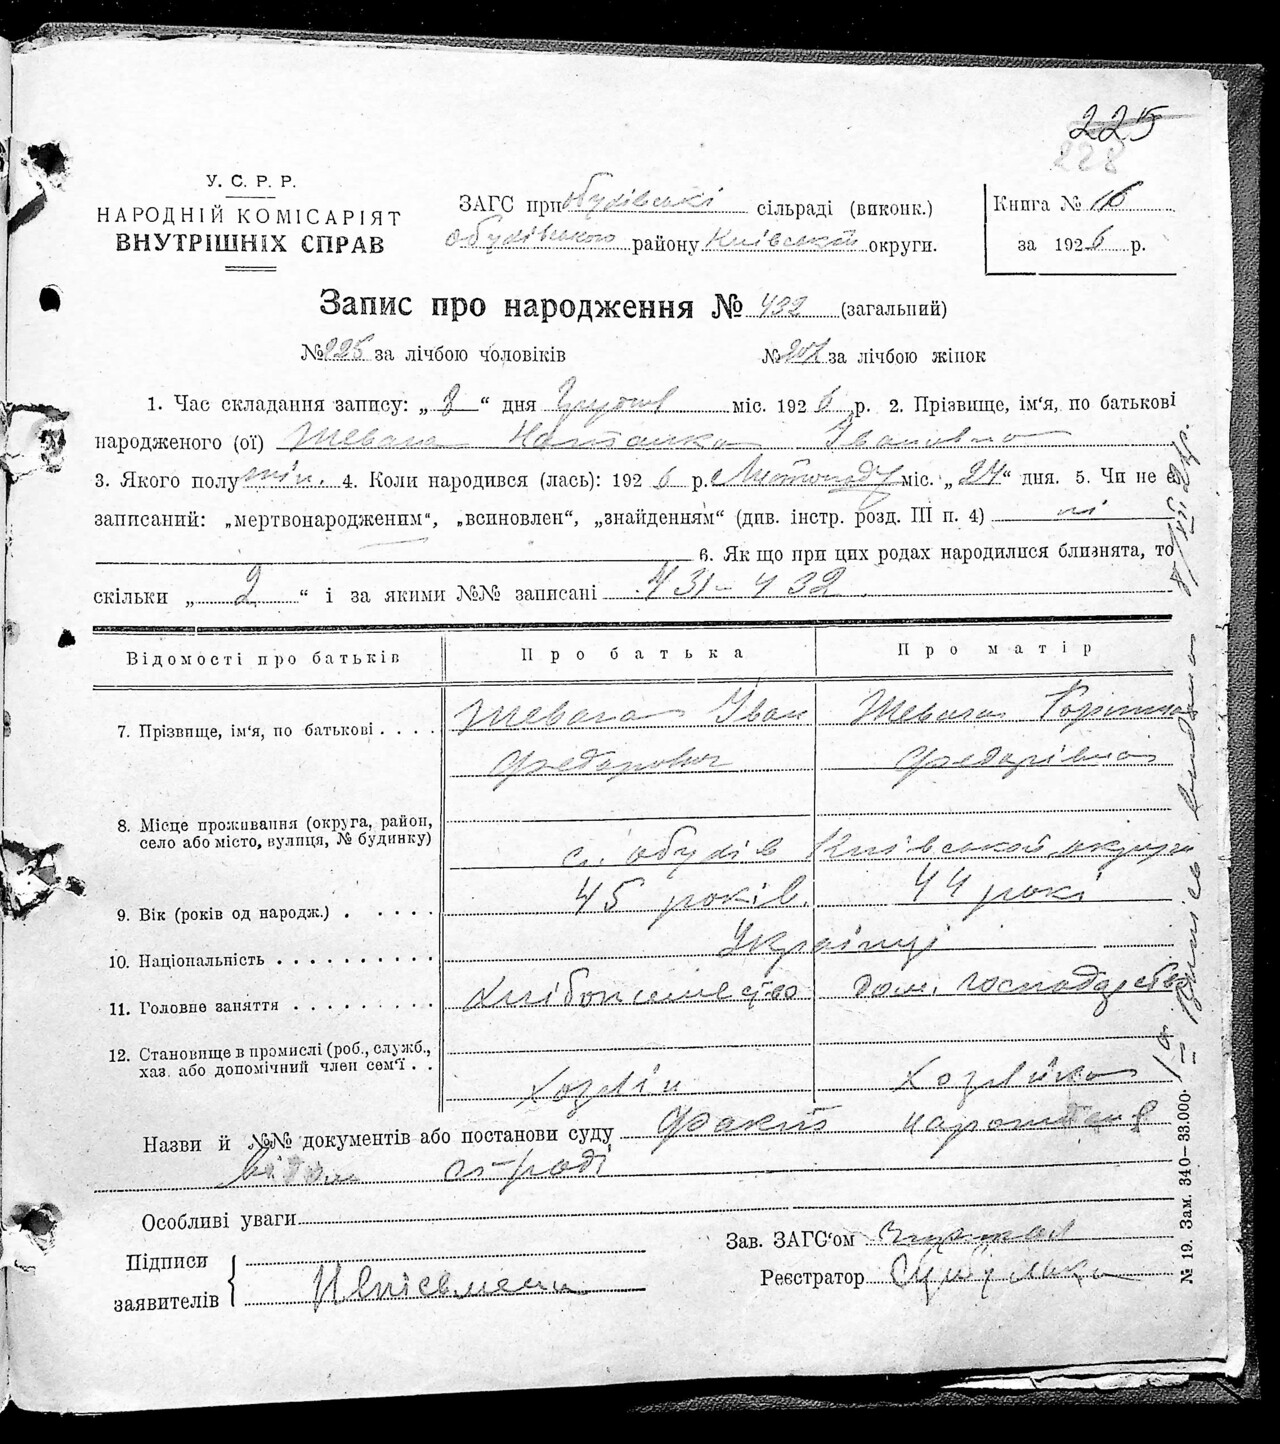 225
228
У. С. Р. Р.
НАРОДНІЙ КОМІСАРІЯТ
ВНУТРІШНІХ СПРАВ
ЗАГС при сільраді (виконк.)
району Київської округи.
Книга № 16
за 1926 р.
Запис про народження № 432 (загальний)
№ 225 за лічбою чоловіків № 207 за лічбою жінок
1. Час складання запису: „ “ дня Грудня міс. 1926 р. 2. Прізвище, ім‘я, по батькові
народженого (ої) Шевага Наталка Івановна
3. Якого полу жін. 4. Коли народився (лась): 1926 р. Листопаду міс. „24“ дня. 5. Чи не є
записаний: „мертвонародженим“, „всиновлен“, „знайденням“ (див. інстр. розд. III п. 4) ні
6. Як що при цих родах народилися близнята, то
скільки „ 2 “ і за якими №№ записані 431-432
Відомості про батьків
Про батька
Про матір
7. Прізвище, ім‘я, по батькові
Шевага Іван
Федорович
Шевага
Федорівна
8. Місце проживання (округа, район, село або місто, вулиця, № будинку)
с. Київської округи
9. Вік (років од народж.)
45 років.
44 рокі
10. Національність
Українці
11. Головне заняття
дом. господарство
12. Становище в промислі (роб., служб., хаз. або допомічний член сем‘ї
Хозяїн
Хозяйка
Назви й №№ документів або постанови суду Факт
с-раді
Особливі уваги
Підписи
заявителів
Неписьмени
Зав. ЗАГС‘ом
Реєстратор
№ 19. Зам. 340–33.000.